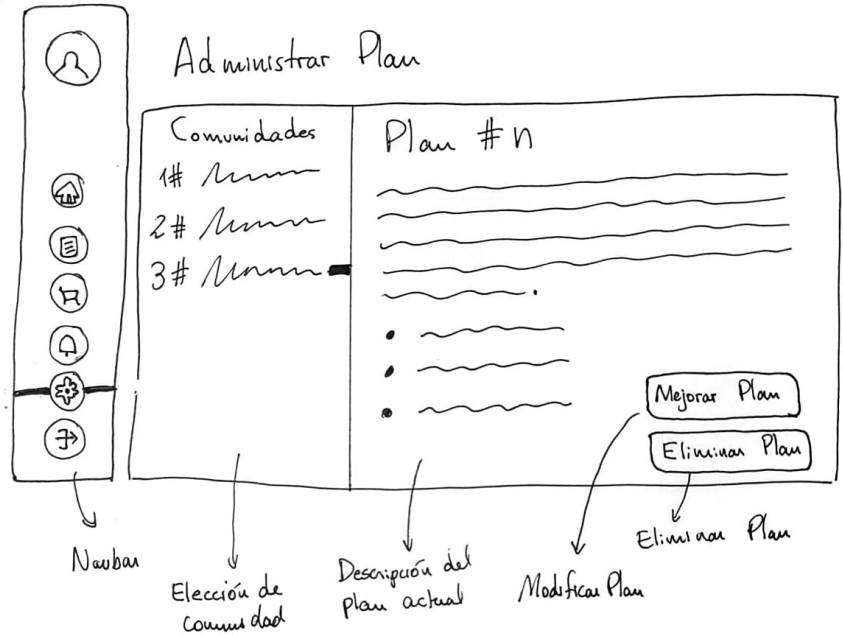 Administrar Plan
Comunidades
1#
2#
3#
Plan #n
Mejorar Plan
Eliminar Plan
Navbar
Elección de
comunidad
Descripción del
plan actual
Modificar Plan
Eliminar Plan